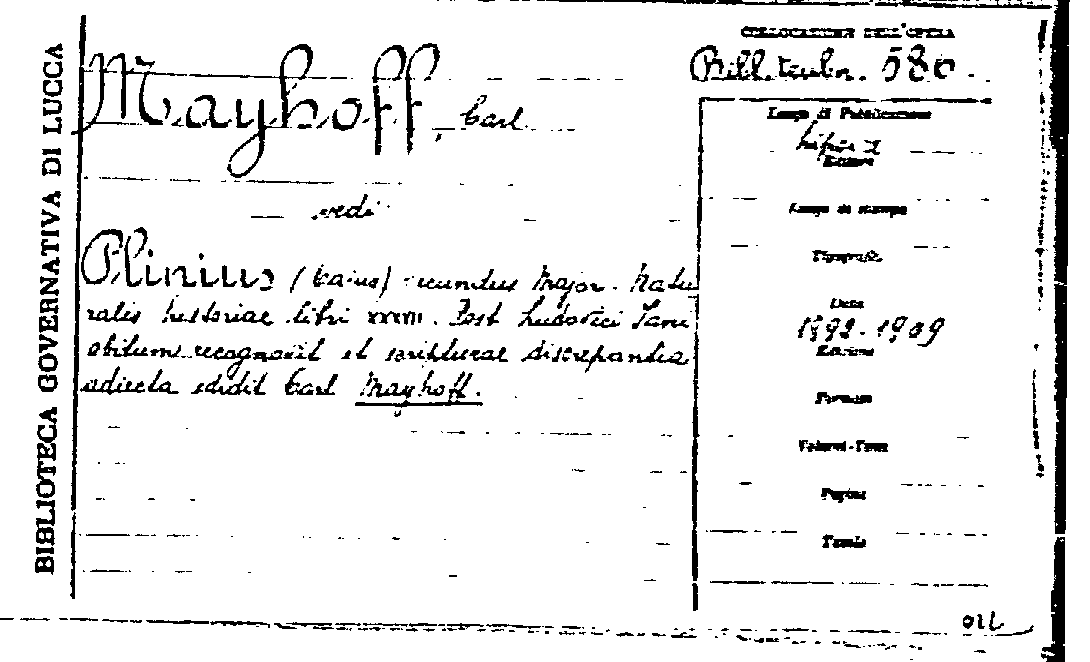 BIBLIOTECA GOVERNATIVA DI LUCCA
Mayhoff, Carl
vedi
Plinius (Caius) secundus Major. Natu
ralis historiae libri XXXVII. Post Ludovici Jani
obitum recognovit et scripturae discrepantia
adiecta edidit Carl Mayhoff.
COLLOCAZIONE DELL'OPERA
Bibl. teubn. 580.
Luogo di Pubblicazione
Lipsia
Editore
Luogo di stampa
Tipografia
Data
1892-1909
Edizione
Formato
Volumi-Tomi
Pagine
Tavole